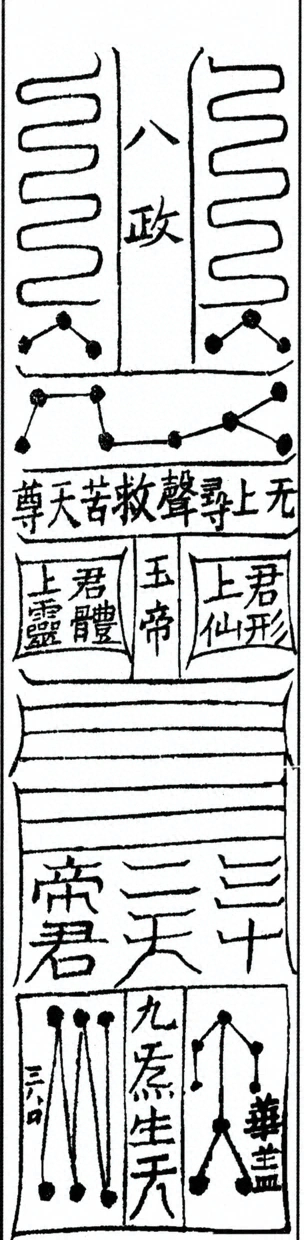 八政
无上尋聲救苦天尊
君形
上仙
玉帝
君體
上靈
三十
二天
帝君
華盖
九炁生天